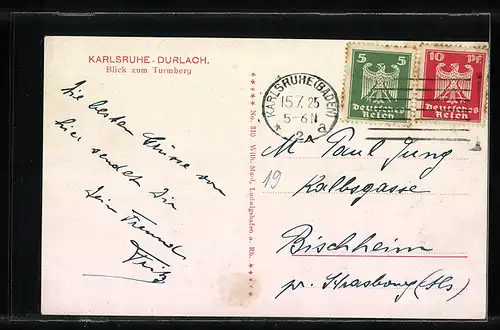 KARLSRUHE-DURLACH.
Blick zum Turmberg
Die besten Grüsse von
hier sendet Dir
Dein Freund
Fritz
★★★★★ No. 810 Wilh. Ludwigshafen a. Rh. ★★★★★
KARLSRUHE (BADEN)
15.7.25
5-6 N
★ 2A a
5 5
Deutsches
Reich
10 Pf
Deutsches
Reich
M Paul Jung
19 Kalbsgasse
Bischheim
pr. Strasbourg (Els)